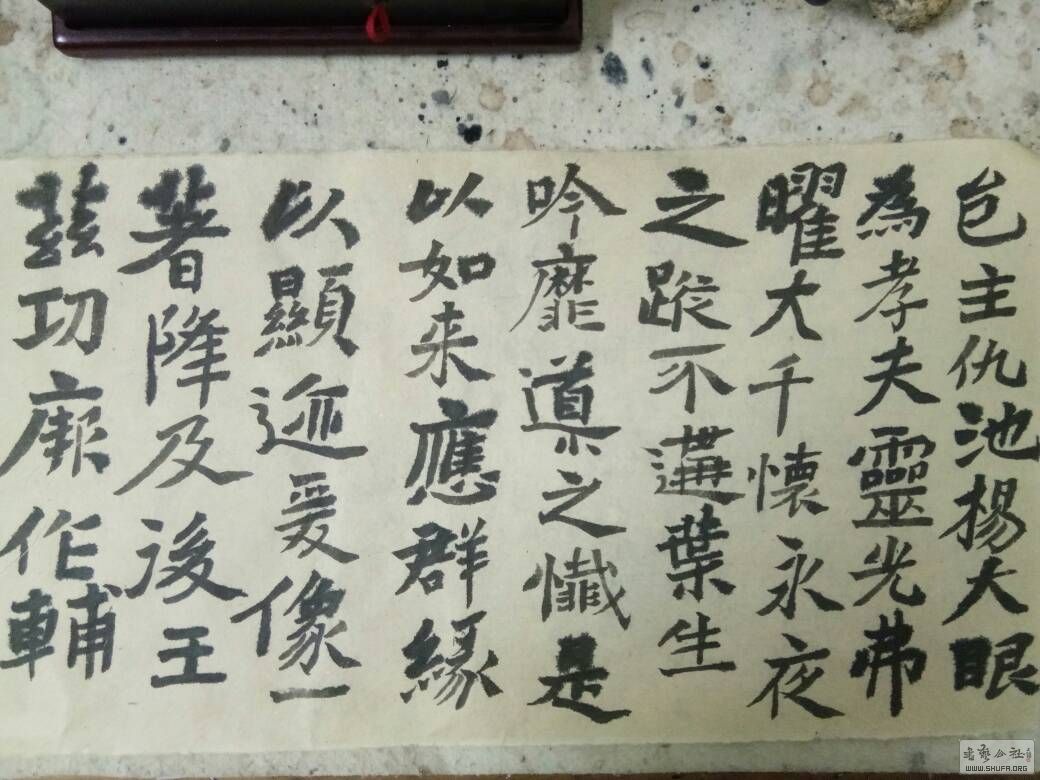 邑主仇池楊大眼
為孝夫靈光弗
曜大千懷永夜
之蹤不遘葉生
吟靡導之懺是
以如来應群緣
以顯迹爰像一
著降及後王
茲功厥作輔
书艺公社
WWW.SHUFA.ORG